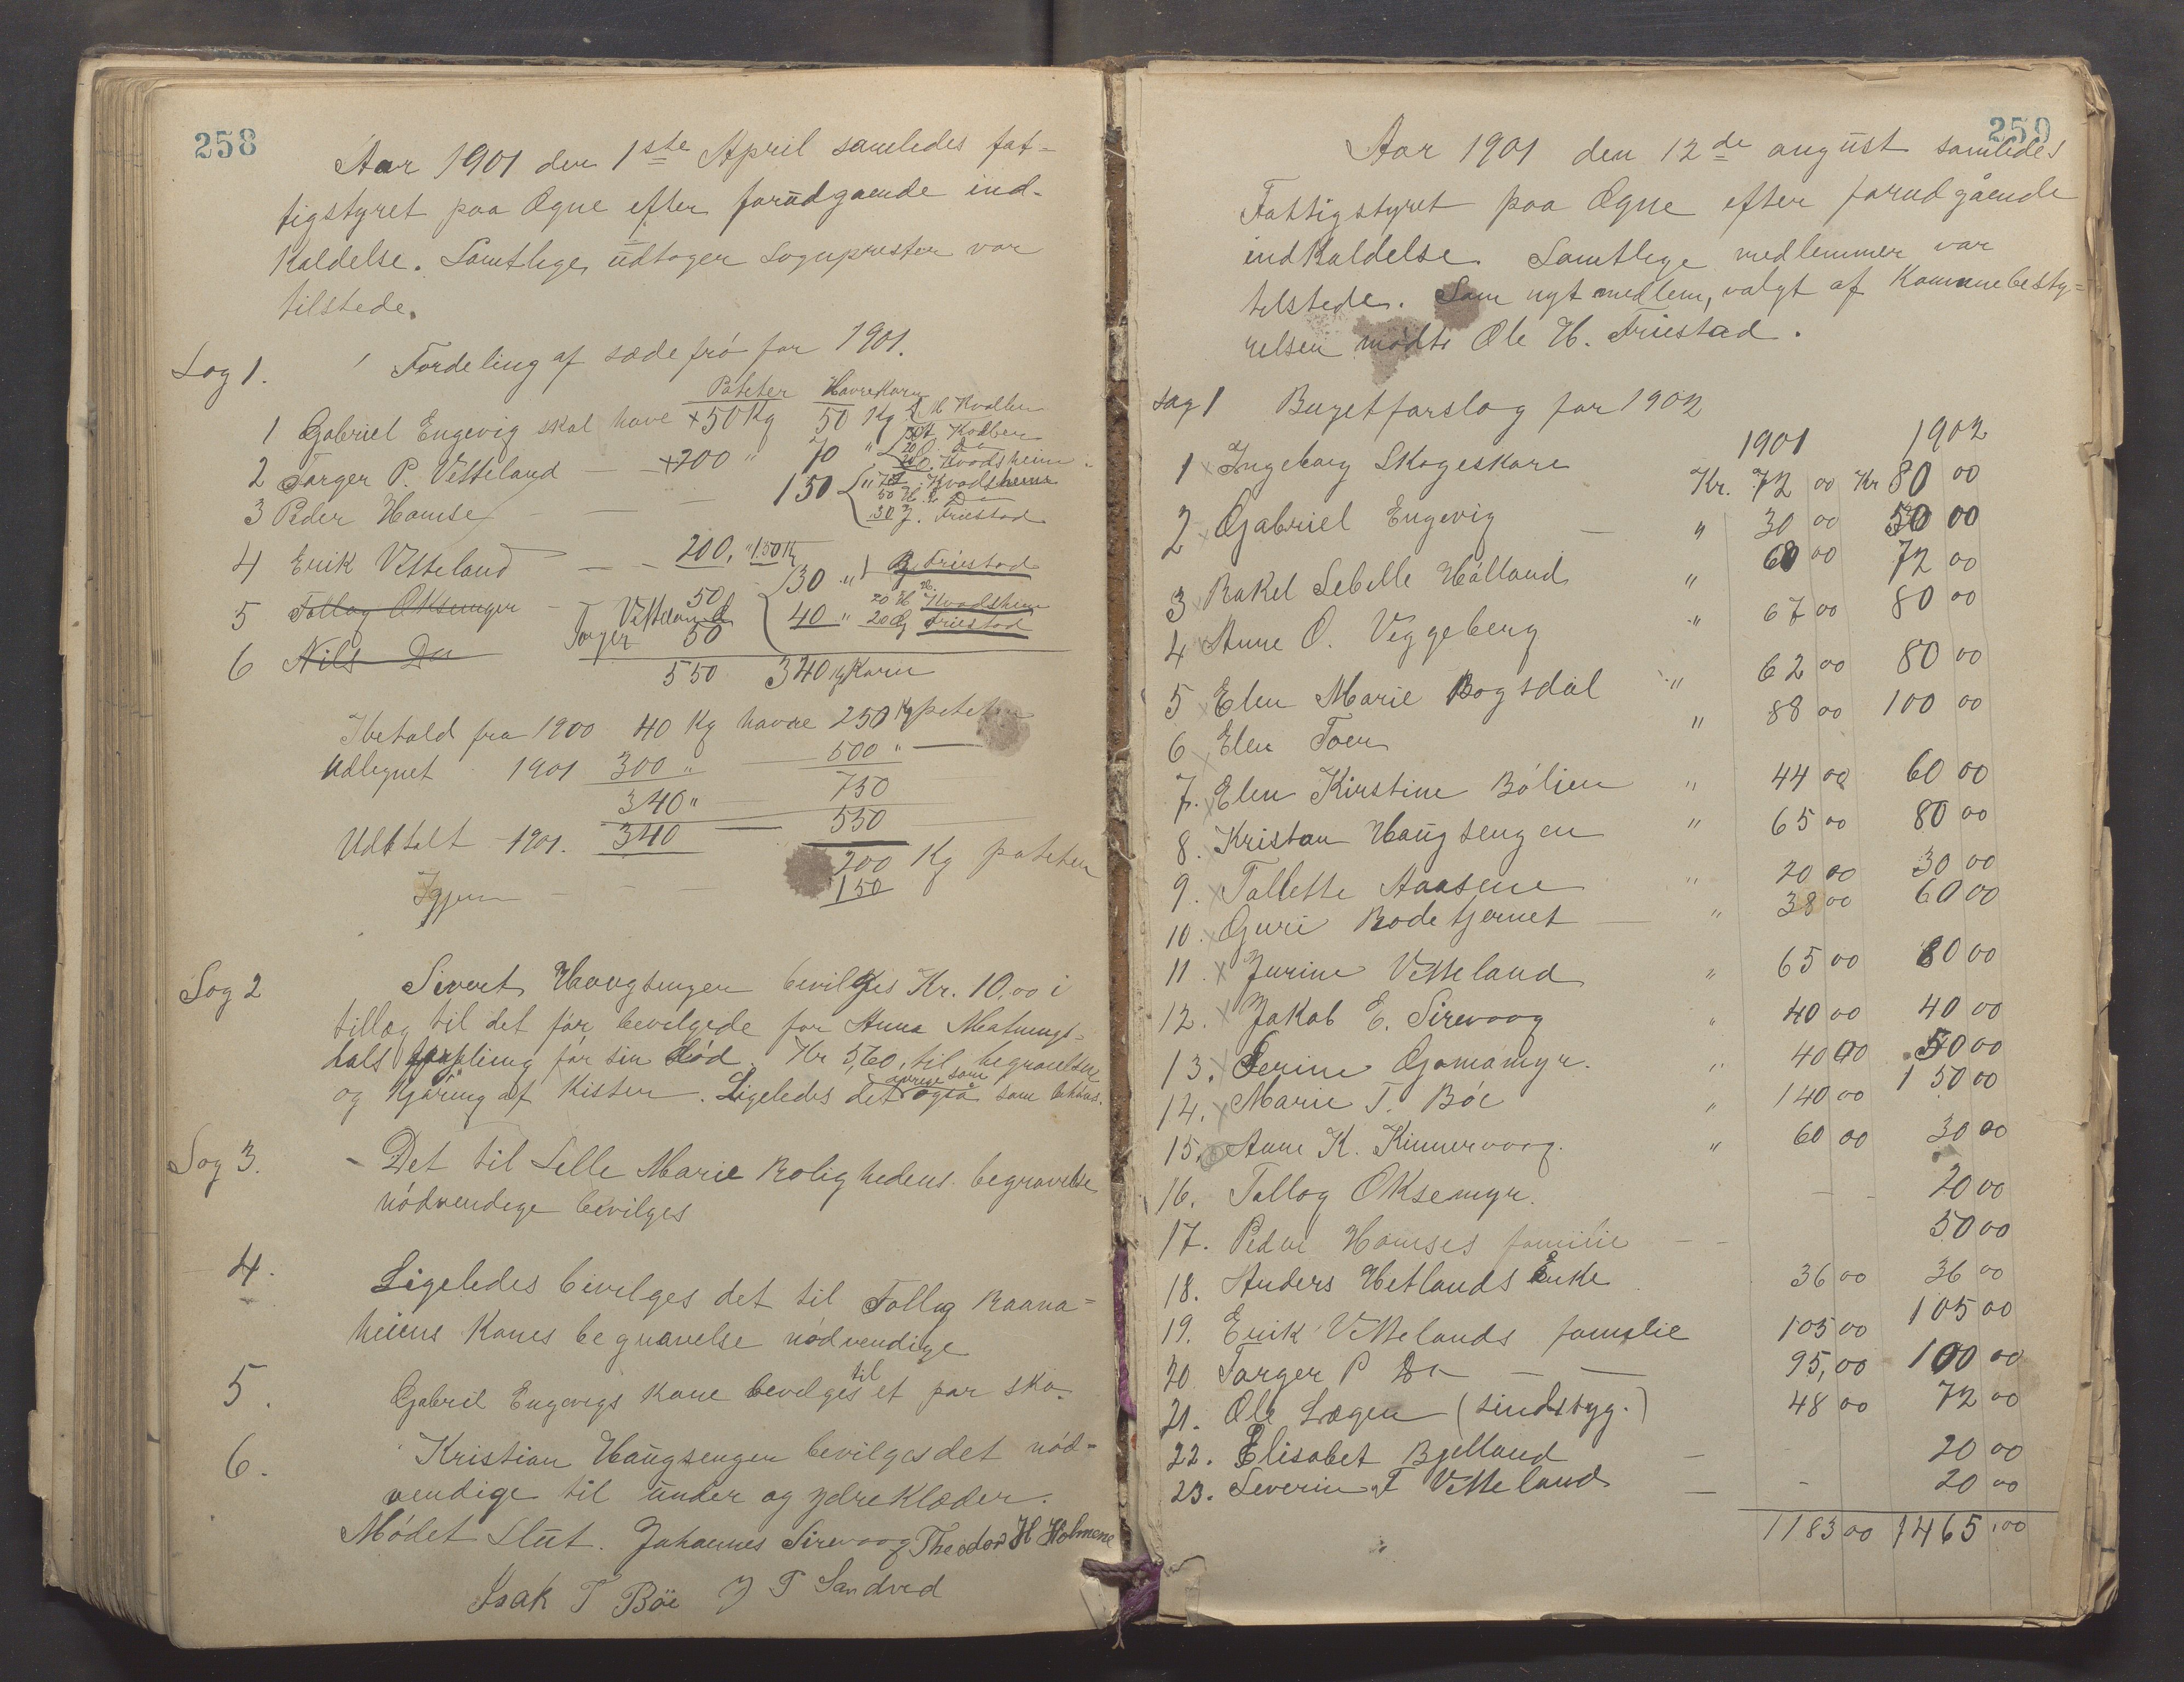 258
Aar 1901 den 1ste April samledes fat-
tigstyret paa Ogne efter forudgaaende ind-
kaldelse. Samtlige, undtagen Sogneprester var
tilstede.
Sag 1. Fordeling af sædefrö for 1901.
Poteter Havrekorn
1 Gabriel Engevig skal have + 50 Kg 50 Kg
2 Torger P. Vetteland — +200 " 70 "
20 O. Kvadsheim
3 Peder Homse — — — 150
50 H. Do
30 J. Friestad
4 Erik Vetteland — — 200. " 150 K
30 " Friestad
5 Tollag Oksemyr Vetteland 50 40 " 20 H. Kvadsheim
6 Nils Do Torger 50 20 Friestad
550 340 Kg Korn
Ibehold fra 1900 40 Kg havre 250 Kg poteter
Udlignet 1901 300 " 500 " —
340 " 750
Udbetalt 1901. 340 — 550
200 Kg poteter
Igjen — — — 150
Sag 2 Sivert Haugsengen bevilges Kr. 10,00 i
tillæg til det för bevilgede for Anna Matnings-
dals forpleining för sin död. Kr 5,60, til begravelsen
og kjöring af Kisten. Ligeledes det övrige som også som behöves.
Sag 3. - Det til Lelle Marie Rolighedens begravelse
nödvendige bevilges
4. Ligeledes bevilges det til Tollag Raana-
heiens Kones begravelse nödvendige
5. Gabril Engevigs Kone bevilges til et par sko.
6. Kristian Haugsengen bevilges det nöd-
vendige til under og ydreklæder.
Mödet slut. Johannes Sirevaag Theodor H Holmene
Isak T Böe J T Sandved
259
Aar 1901 den 12de august samledes
Fattigstyret paa Ogne efter forudgående
indkaldelse. Samtlige medlemmer var
tilstede. Som nyt medlem, valgt af Kommunebesty-
relsen mödte Ole H. Friestad.
Sag 1 Bugetforslag for 1902
1901 1902
1 x Ingeborg Skogeskare Kr. 72 00 Kr 80 00
2 x Gabriel Engevig — " 30 00 50 00
3 x Rakel Sebille Hålland " 68 00 72 00
4 x Anne O. Veggeberg " 67 00 80 00
5 x Elen Marie Bogsdal " 62 00 80 00
6 x Elen Toen " 88 00 100 00
7. x Elen Kirstine Böljen " 44 00 60 00
8. x Kristan Haugsengen " 65 00 80 00
9. x Tallette Aasene " 20 00 30 00
10. x Guri Rodetjernet — " 38 00 60 00
11. x Jurine Vetteland " 65 00 80 00
12. x Jakob E. Sirevaag " 40 00 40 00
13. x Serine Gomamyr. " 40 00 50 00
14. x Marie T. Böe " 140 00 150 00
15. Anne K. Kinnervaag. " 60 00 30 00
16. Tollag Oksemyr. — — 20 00
17. Peder Homses familie — — 50 00
18. Anders Hetlands Enke 36 00 36 00
19. Erik Vettelands familie 105 00 105 00
20 Torger P Do — — 95,00 100 00
21. Ole Lægen (sindssyg.) 48 00 72 00
22. Elisabet Bjelland — - 20 00
23. Severin T Vetteland — - 20 00
1183 00 1465,00